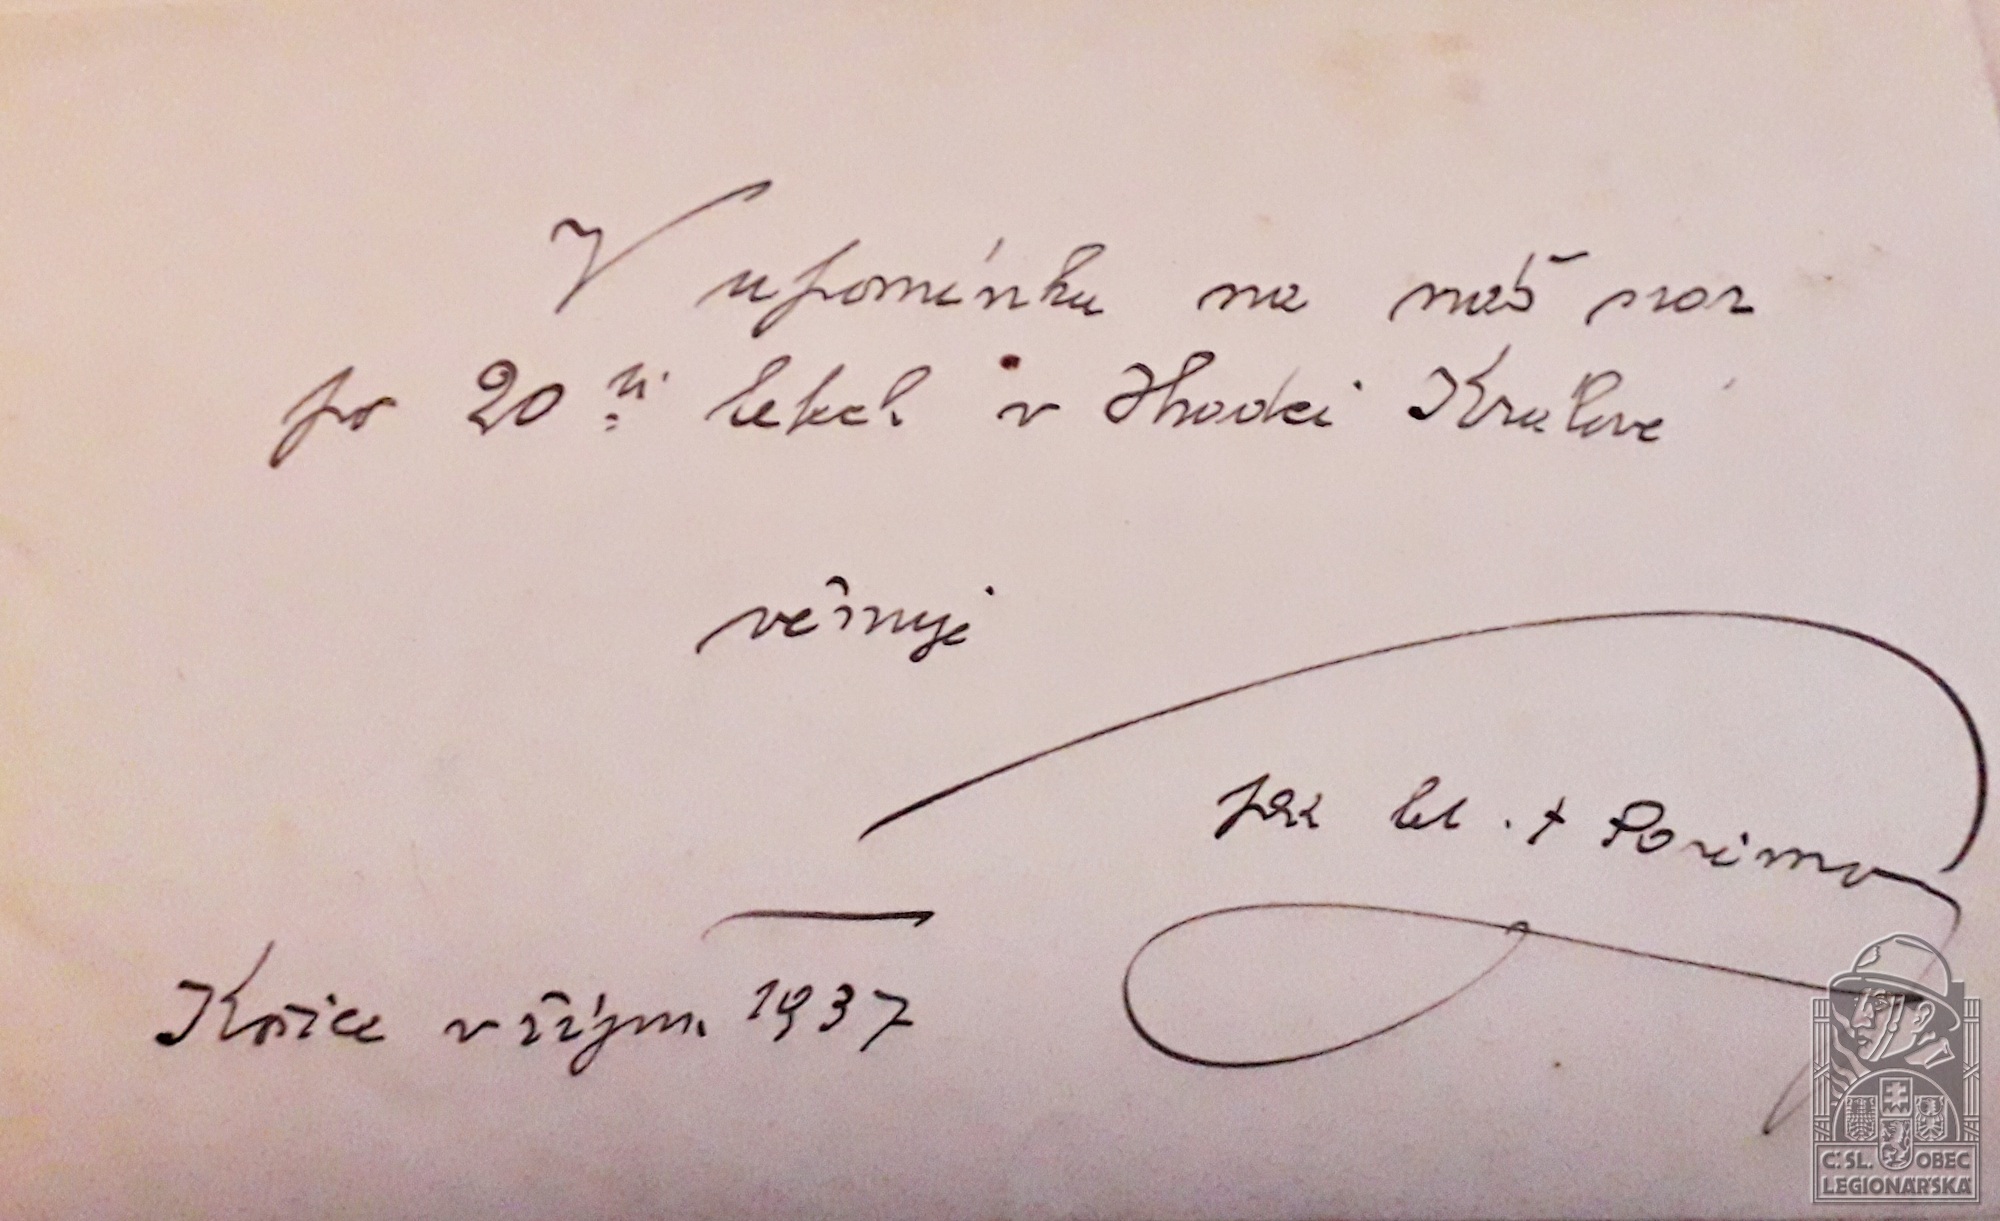 V upomínku na náš sraz
po 20ti letech v Hradci Králové
věnuje
pluk let. A Porima
Košice v říjnu 1937
Č.SL. OBEC
LEGIONÁŘSKÁ